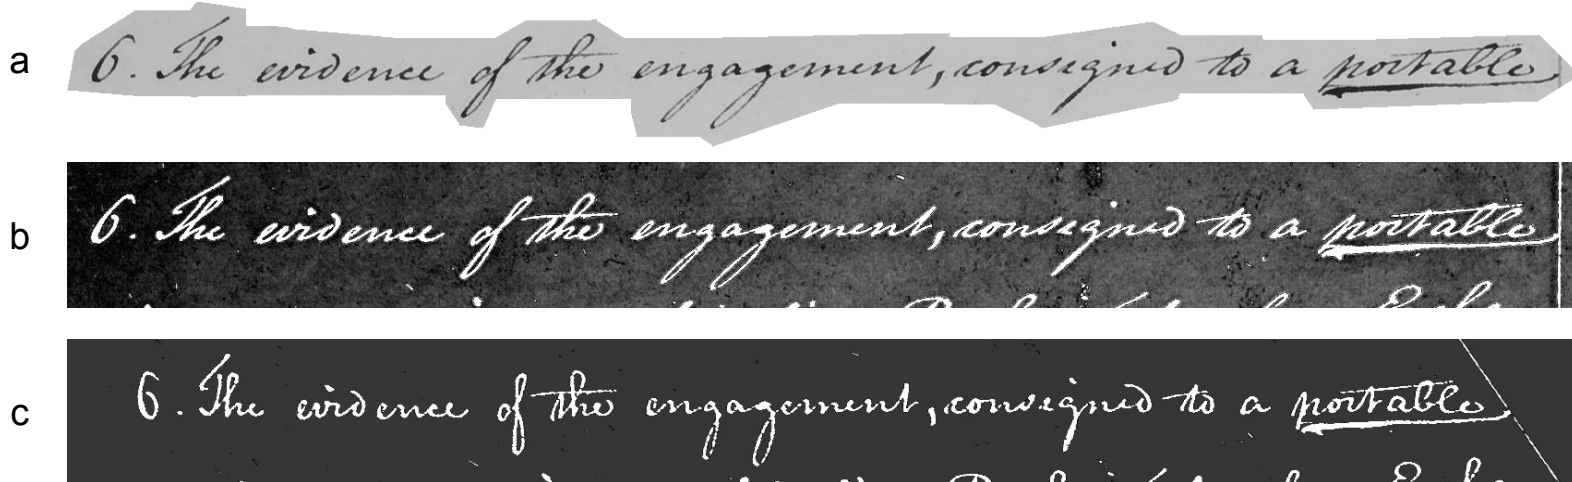 a
6. The evidence of the engagement, consigned to a portable
b
6. The evidence of the engagement, consigned to a portable
c
6. The evidence of the engagement, consigned to a portable